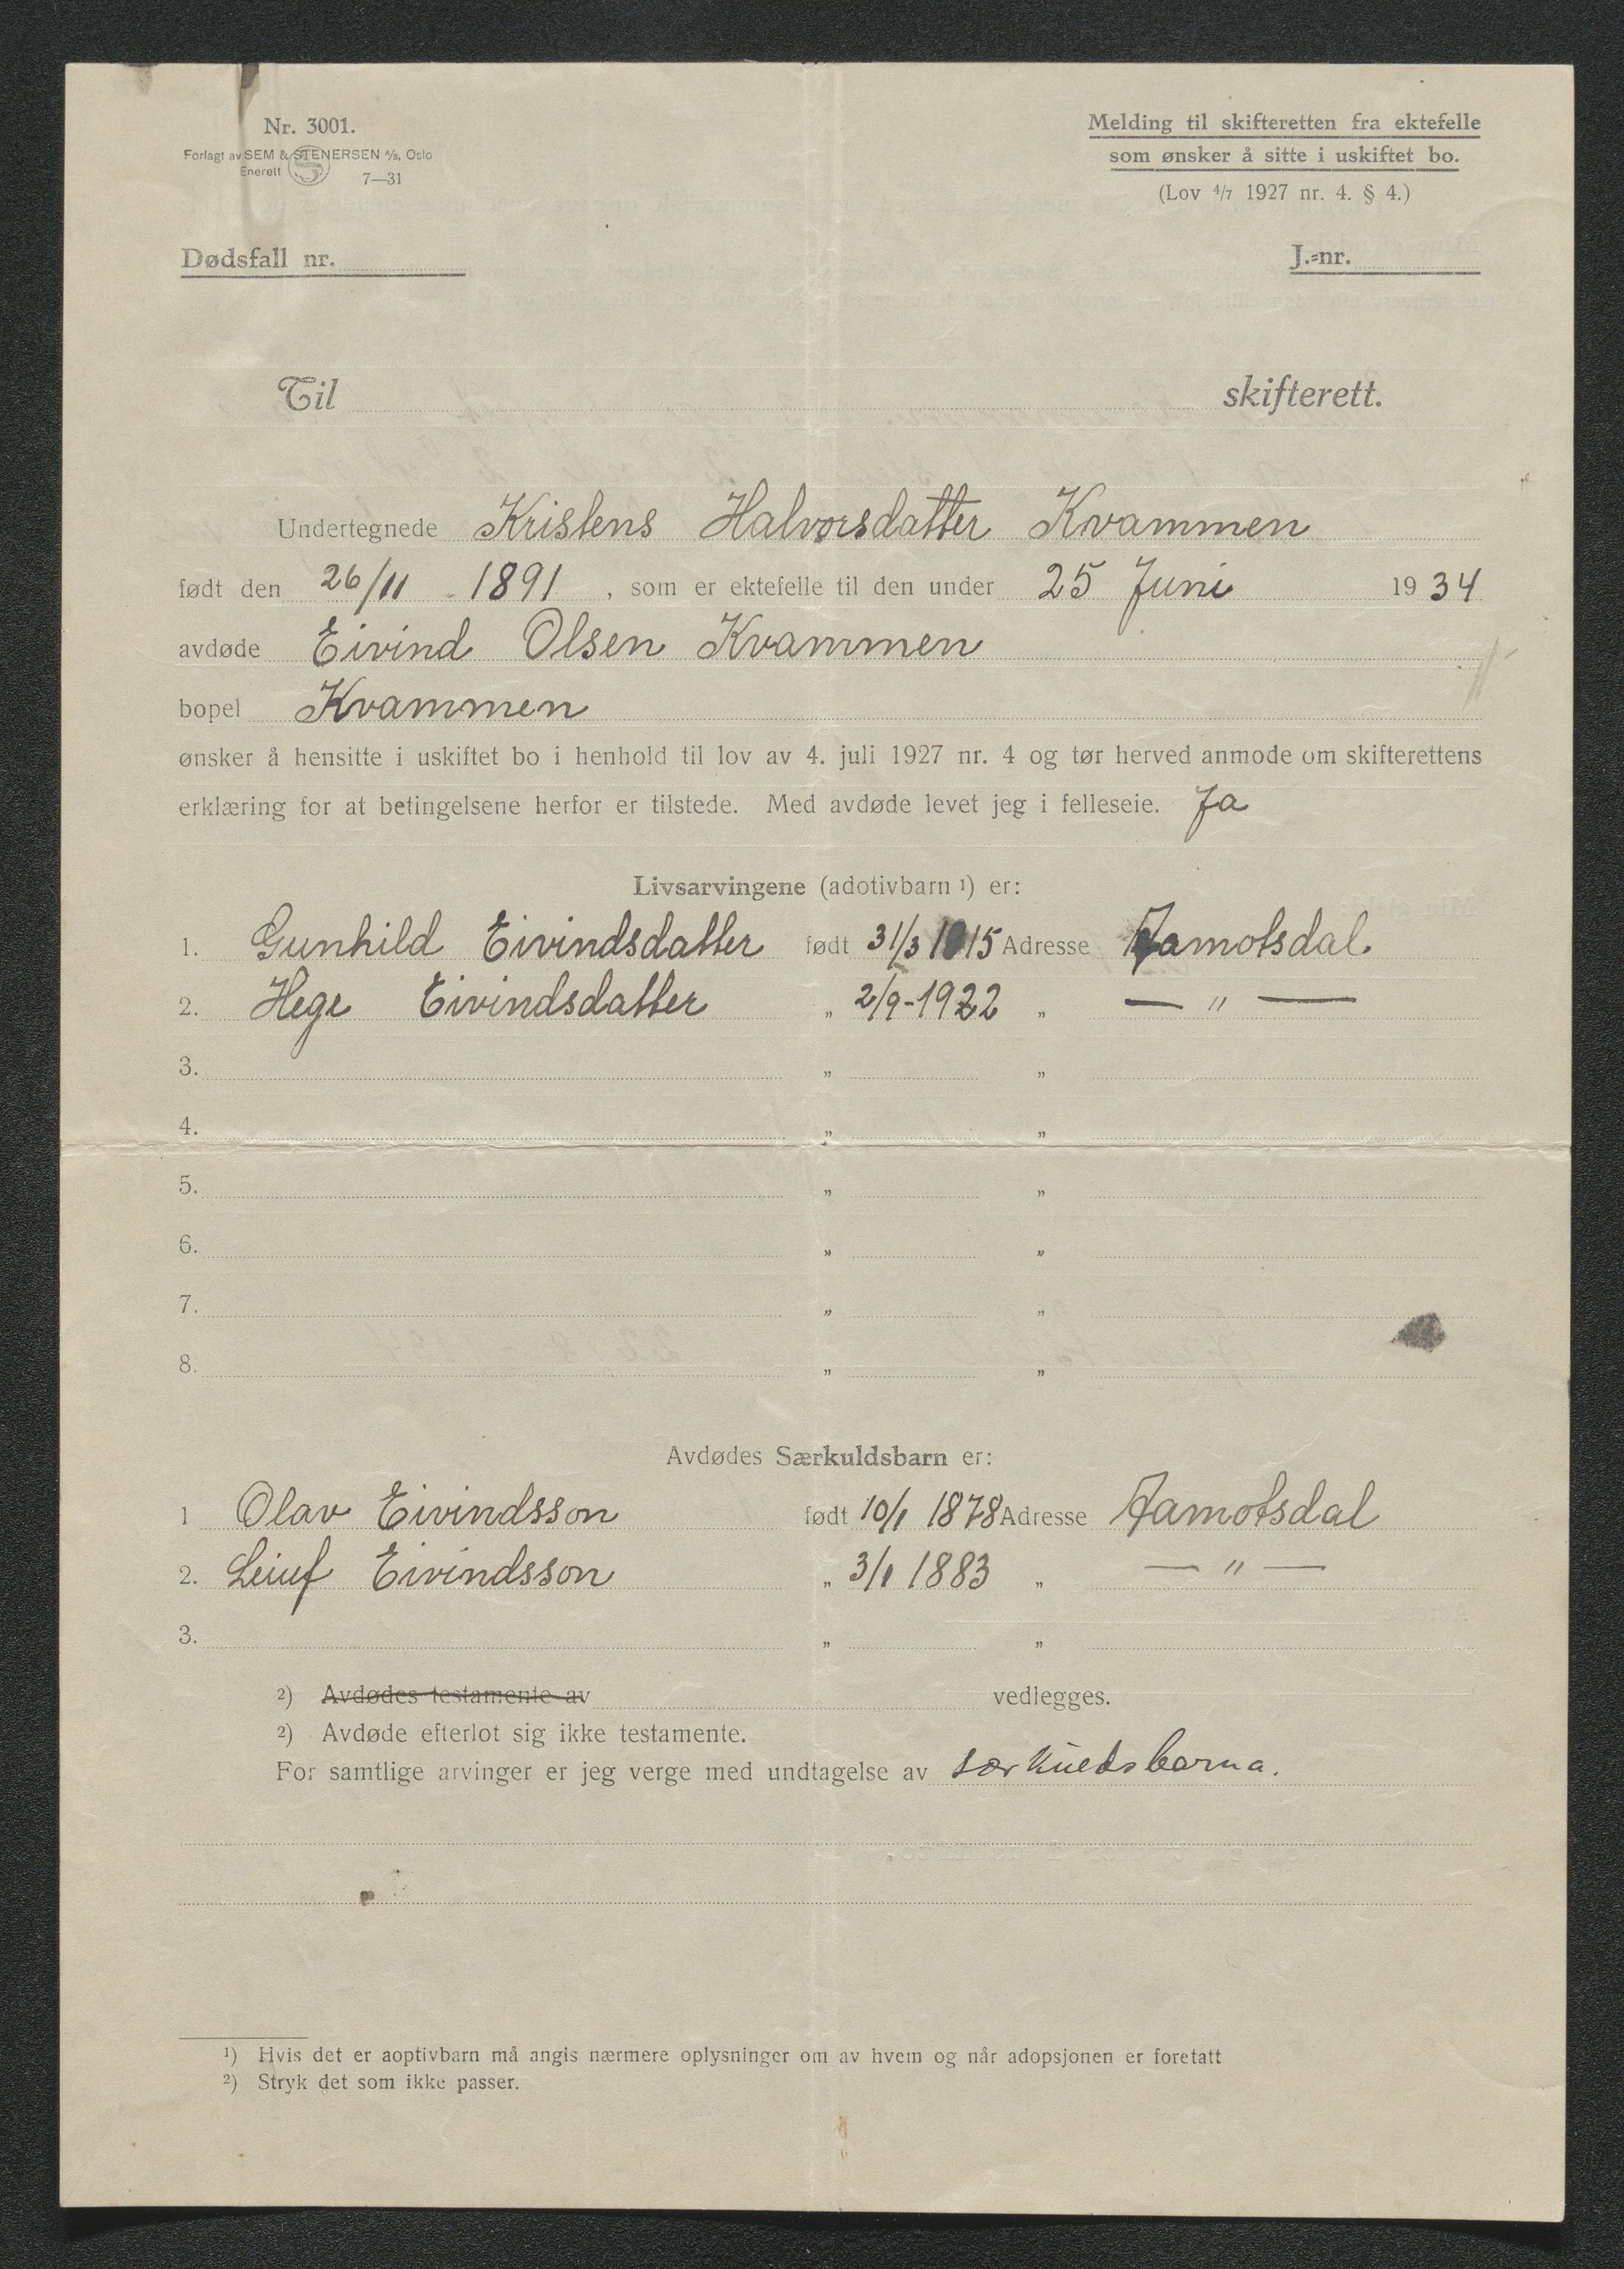 Nr. 3001.
Forlagt av SEM & STENERSEN A/S, Oslo
Enerett 7—31
Melding til skifteretten fra ektefelle
som ønsker å sitte i uskiftet bo.
(Lov 4/7 1927 nr. 4. § 4.)
Dødsfall nr.
J.-nr.
Til skifterett.
Undertegnede Kristens Halvorsdatter Kvammen
født den 26/11 1891, som er ektefelle til den under 25 Juni 1934
avdøde Eivind Olsen Kvammen
bopel Kvammen
ønsker å hensitte i uskiftet bo i henhold til lov av 4. juli 1927 nr. 4 og tør herved anmode om skifterettens
erklæring for at betingelsene herfor er tilstede. Med avdøde levet jeg i felleseie. Ja
Livsarvingene (adotivbarn ¹) er:
1. Gunhild Eivindsdatter født 31/3 1915 Adresse Aamotsdal.
2. Hege Eivindsdatter „ 2/9-1922 „ — " —
3. „ „
4. „ „
5. „ „
6. „ „
7. „ „
8. „ „
Avdødes Særkuldsbarn er:
1 Olav Eivindsson født 10/1 1878 Adresse Aamotsdal
2. Leiuf Eivindsson „ 3/1 1883 „ — " —
3. „ „
²) Avdødes testamente av vedlegges.
²) Avdøde efterlot sig ikke testamente.
For samtlige arvinger er jeg verge med undtagelse av særkuldsbarna.
¹) Hvis det er aoptivbarn må angis nærmere oplysninger om av hvem og når adopsjonen er foretatt
²) Stryk det som ikke passer.